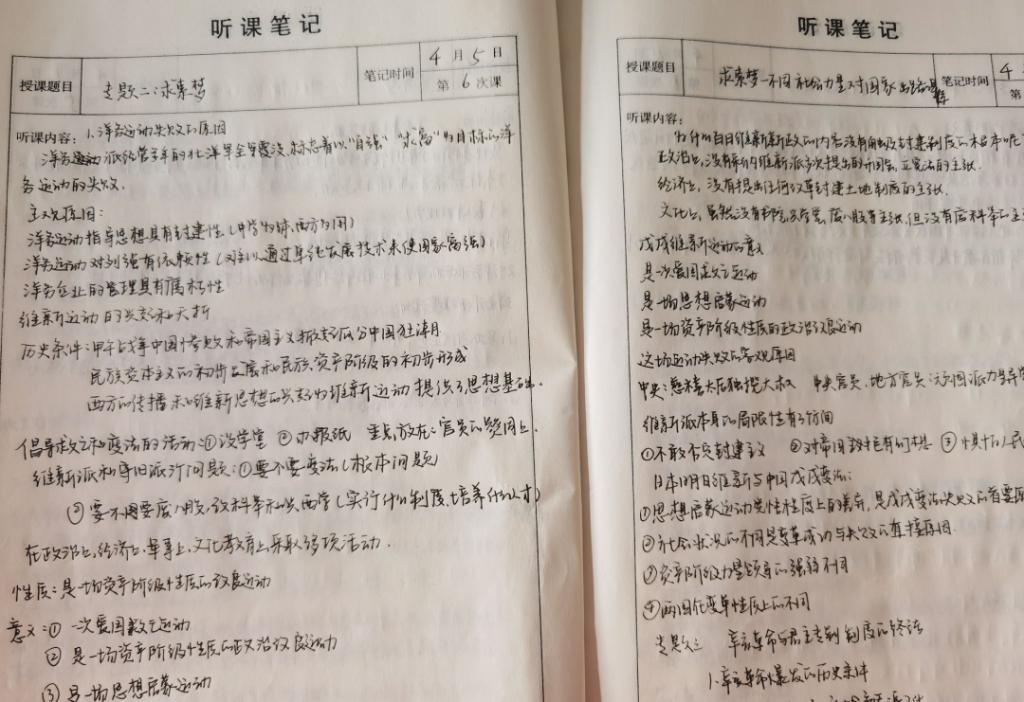 听课笔记
授课题目 专题二:求索梦 笔记时间 4月5日
第6次课
听课内容: 1.洋务运动失败的原因
洋务运动派经营多年的北洋军全军覆没,标志着以"自强""求富"为目标的洋
务运动的失败.
主要原因:
洋务运动指导思想具有封建性(中学为体,西方为用)
洋务运动对列强有依赖性
洋务企业的管理具有腐朽性
维新运动的兴起和夭折
历史条件:甲午战争中国惨败和帝国主义掀起瓜分中国狂潮
民族资本主义的初步发展和民族资产阶级的初步形成
西方的传播和维新思想的兴起为维新运动提供了思想基础.
倡导救亡和变法的活动:①设学堂 ②办报纸 重点放在:官员的圈
维新派和守旧派的问题:①要不要变法(根本问题)
②要不用要废八股,改科举和兴西学(实行什么制度,培养什么人才)
在政治上,经济上,军事上,文化教育上采取多项活动.
性质:是一场资产阶级性质的改良运动
意义:①一次爱国救亡运动
②是一场资产阶级性质的政治改良运动
③是一场思想启蒙运动
听课笔记
授课题目 求索梦—不同社会力量对国家出路的 笔记时间 4
第
听课内容:
为什么百日维新新政的内容没有触及封建制度的根本呢
政治上,没有采纳维新派多次提出的开国会,立宪法的主张.
经济上,没有提出任何改革封建土地制度的主张.
文化上,虽然没有书院,废八股等主张,但没有启科举的主
戊戌维新运动的意义
是一次爱国救亡运动
是一场思想启蒙运动
是一场资产阶级性质的政治改良运动
这场运动失败的客观原因
中央:慈禧太后独揽大权 中央官员,地方官员:
维新派本身的局限性有3方面
①不敢否定封建主义 ②对帝国主义抱有幻想 ③惧怕人民
日本明治维新与中国戊戌变法:
①思想启蒙运动受性程度上的差异,是戊戌变法失败的首要原
②社会状况的不同是变革成功与失败的直接原因
③资产阶级力量领导的强弱不同
④两国在变革性质上的不同
专题三 辛亥革命与君主专制制度的终结
1.辛亥革命爆发的历史条件